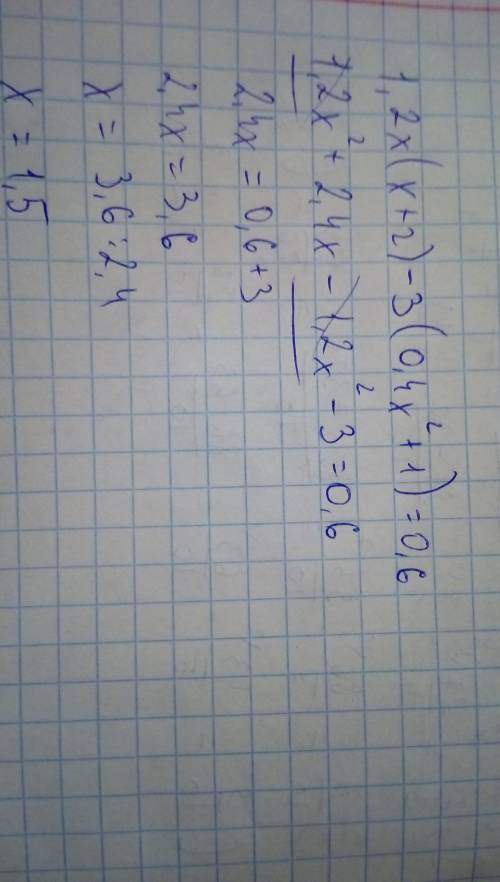 1,2x(x+2)-3(0,4x²+1)=0,6
1,2x²+2,4x-1,2x²-3=0,6
2,4x=0,6+3
2,4x=3,6
x=3,6:2,4
x=1,5